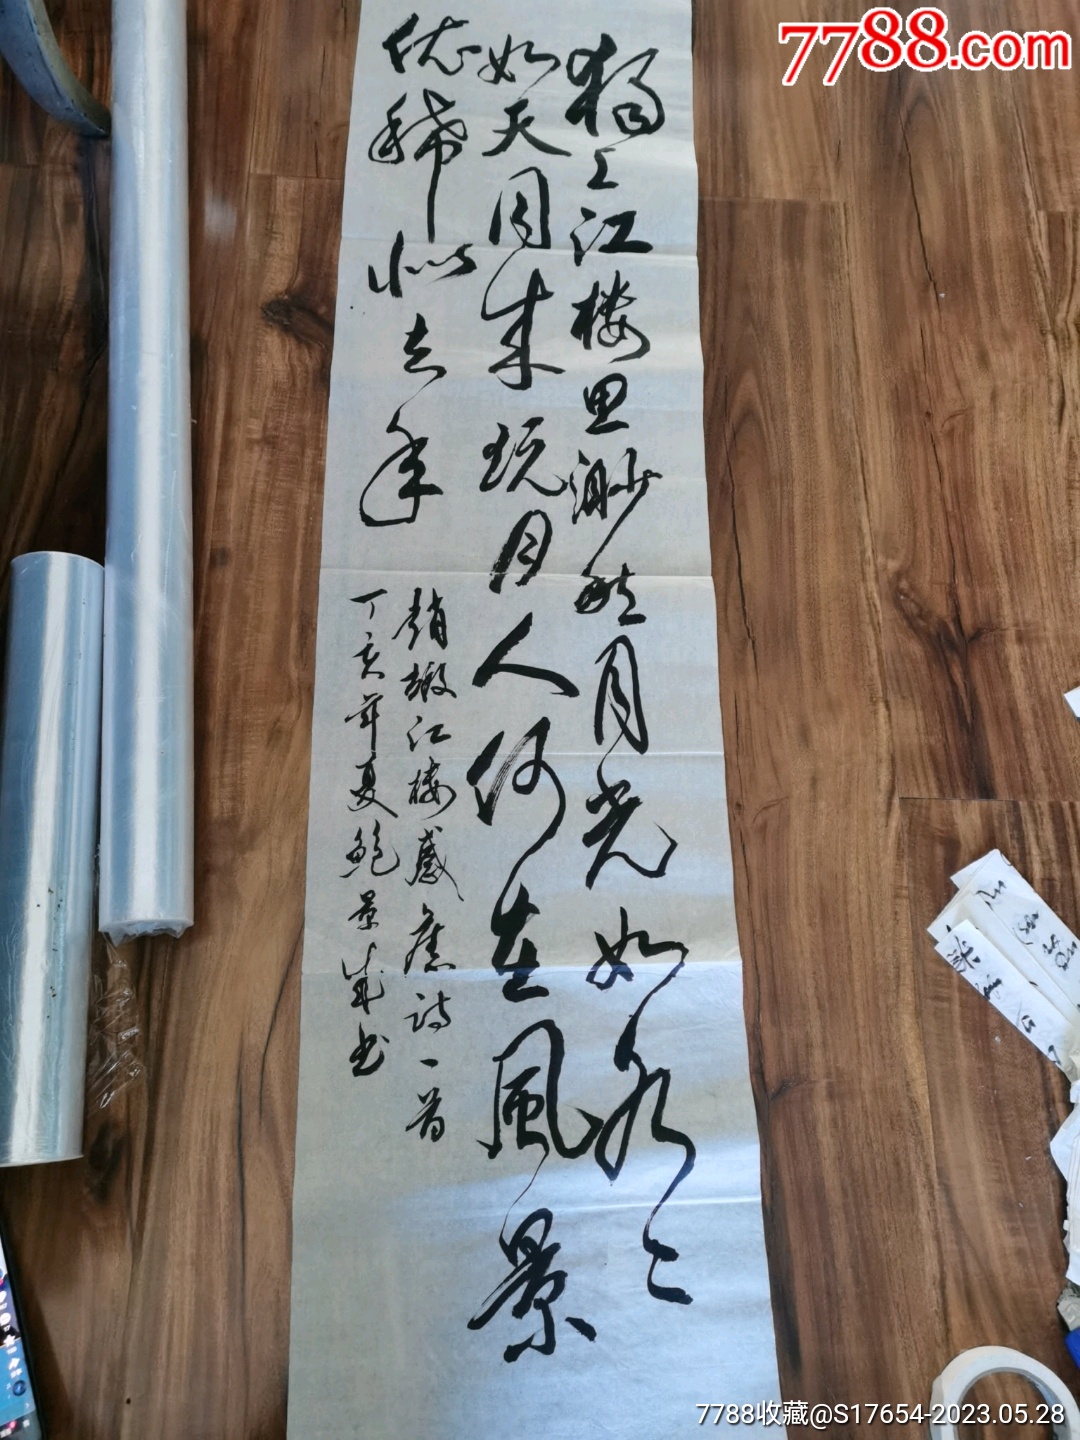 7788.com
獨上江楼思渺然月光如水〻
如天同来玩月人何在風景
依稀似去年
趙嘏江楼感舊诗一首
丁亥年夏鲍景成书
7788收藏@S17654-2023.05.28